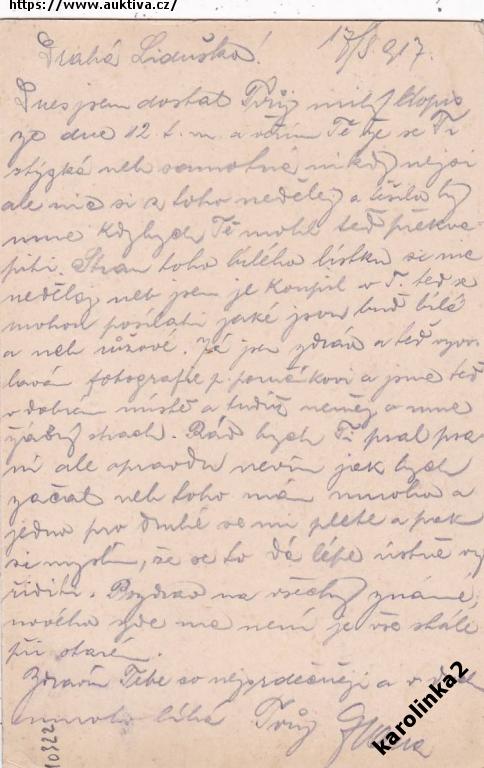 https://www.auktiva.cz/
Drahá Liduško! 17/8 917.
Dnes jsem dostal Tvůj milý dopis
ze dne 12 t. m. a věřím Ti že se Ti
stýská neb samotná nikdy nejsi
ale nic si z toho nedělej a těšilo by
mne kdybych Tě mohl teď překva
piti. Stran toho bílého lístku si nic
nedělej neb jsem je koupil v T teď se
mohou posílati jaké jsou buď bílé
a neb růžové. Já jsem zdráv a teď vyvo
lávám fotografie p. poručíkovi a jsme teď
v dobrém místě a tudíž neměj o mne
žádný strach. Rád bych Ti psal psa
ní ale opravdu nevím jak bych
začal neb toho mám mnoho a
jedno pro druhé se mi plete a pak
si myslím, že se to dá lépe ústně vy
říditi. Pozdrav na všechny známé,
nového zde nic není je vše stále
při starém.
Zdravím Tebe co nejsrdečněji a v
mnoho líbá Tvůj
karolinka2
10322